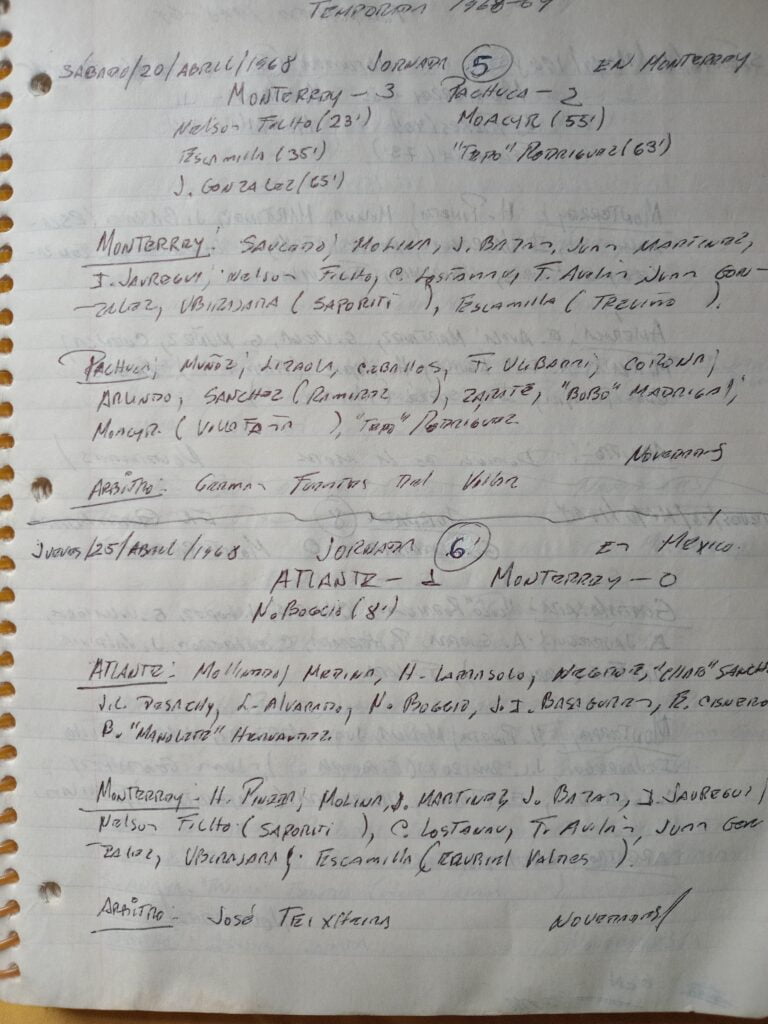 TEMPORADA 1968-69
SÁBADO/20/ABRIL/1968 JORNADA 5 EN MONTERREY
MONTERREY - 3 PACHUCA - 2
Nelson Filho (23') MOACYR (55')
Escamilla (35') "TAPO" RODRIGUEZ (63')
J. GONZALEZ (65')
MONTERREY: SAUCEDO; MOLINA, J. BAZAN, JUAN MARTINEZ,
I. JAUREGUI; Nelson Filho, C. Lostanau, T. Avilán, JUAN GON-
ZALEZ, UBIRAJARA (SAPORITI), ESCAMILLA (TREVIÑO).
PACHUCA; MUÑOZ; LIZAOLA, CEBALLOS, J. ULIBARRI, CORONA;
ARLINDO, SANCHEZ (RAMIREZ), ZARATE, "BOBO" MADRIGAL,
MOACYR (VILLOTAÑA), "TAPO" RODRIGUEZ.
Novedades
ARBITRO: German Fuentes Del Villar
JUEVES/25/ABRIL/1968 JORNADA 6 EN MEXICO.
ATLANTE - 1 MONTERREY - 0
N. BOGGIO (8')
ATLANTE: Mollinedo; MEDINA, H. "CHATO" SANCH
J.L. DESACHY, L. ALVARADO, N. BOGGIO, J.I. BASAGUREN, R. CISNERO
B. "MANOLETE" HERNANDEZ.
MONTERREY - H. PINEDA; MOLINA, J. MARTINEZ, J. BAZAN, I. JAUREGUI;
Nelson Filho (SAPORITI), C. LOSTANAU, T. Avilán, JUAN GON-
ZALEZ, UBIRAJARA, ESCAMILLA (Valdes).
ARBITRO: José TEIXEIRA Novedades